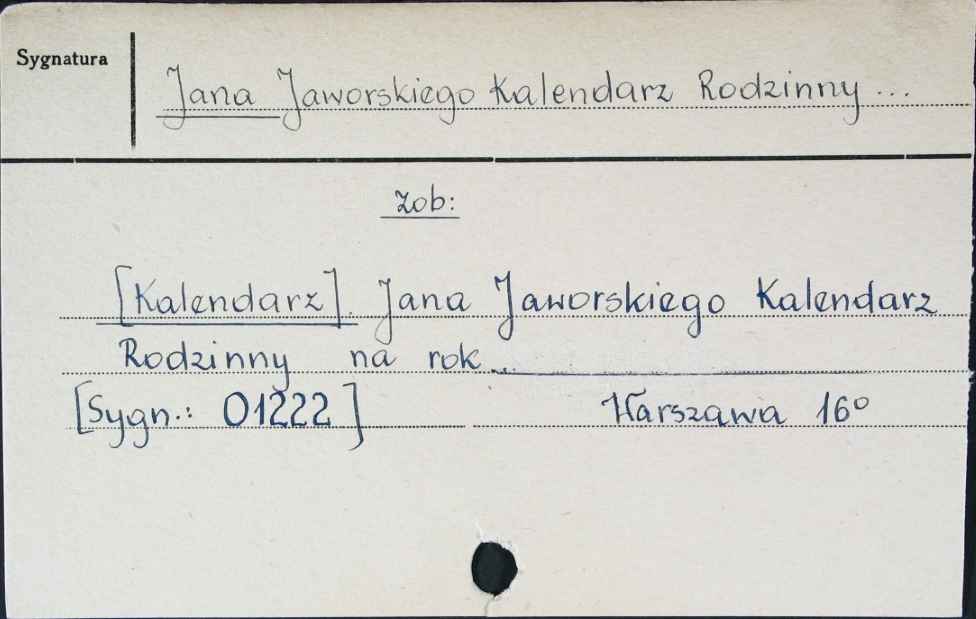 Sygnatura
Jana Jaworskiego Kalendarz Rodzinny ...
Zob:
[Kalendarz]. Jana Jaworskiego Kalendarz
Rodzinny na rok ...
[Sygn.: 01222] Warszawa 16°